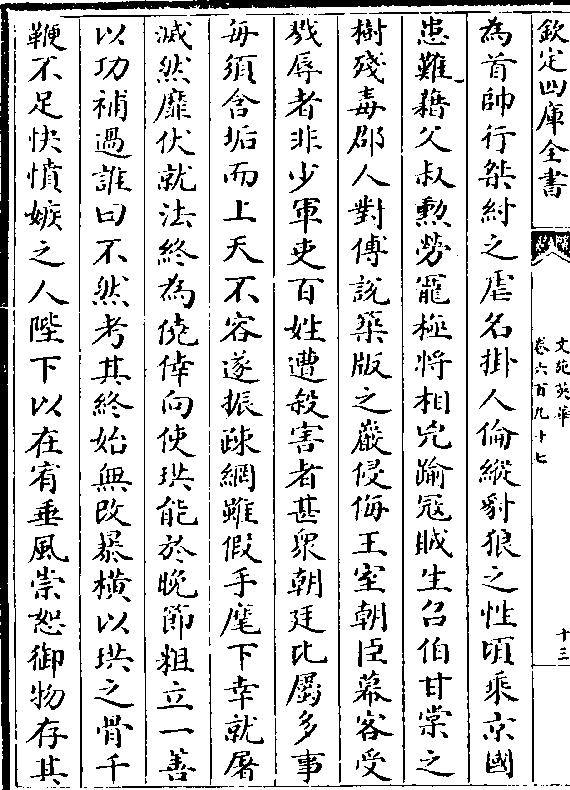 欽定四庫全書
文苑英華
卷六百九十七
十三
為首帥行桀紂之虐名掛人倫縱豺狼之性頃乘京國
患難藉父叔勲勞寵極將相兇踰冦賊生召伯甘棠之
樹殘毒郡人對傅說築版之巖侵侮王室朝臣幕客受
戮辱者非少軍吏百姓遭殺害者甚衆朝廷比屬多事
每須含垢而上天不容遂振疎網雖假手麾下幸就屠
滅然靡伏就法終為僥倖向使珙能於晩節粗立一善
以功補過誰曰不然考其終始無改暴橫以珙之骨千
鞭不足快憤嫉之人陛下以在宥垂風崇恕御物存其